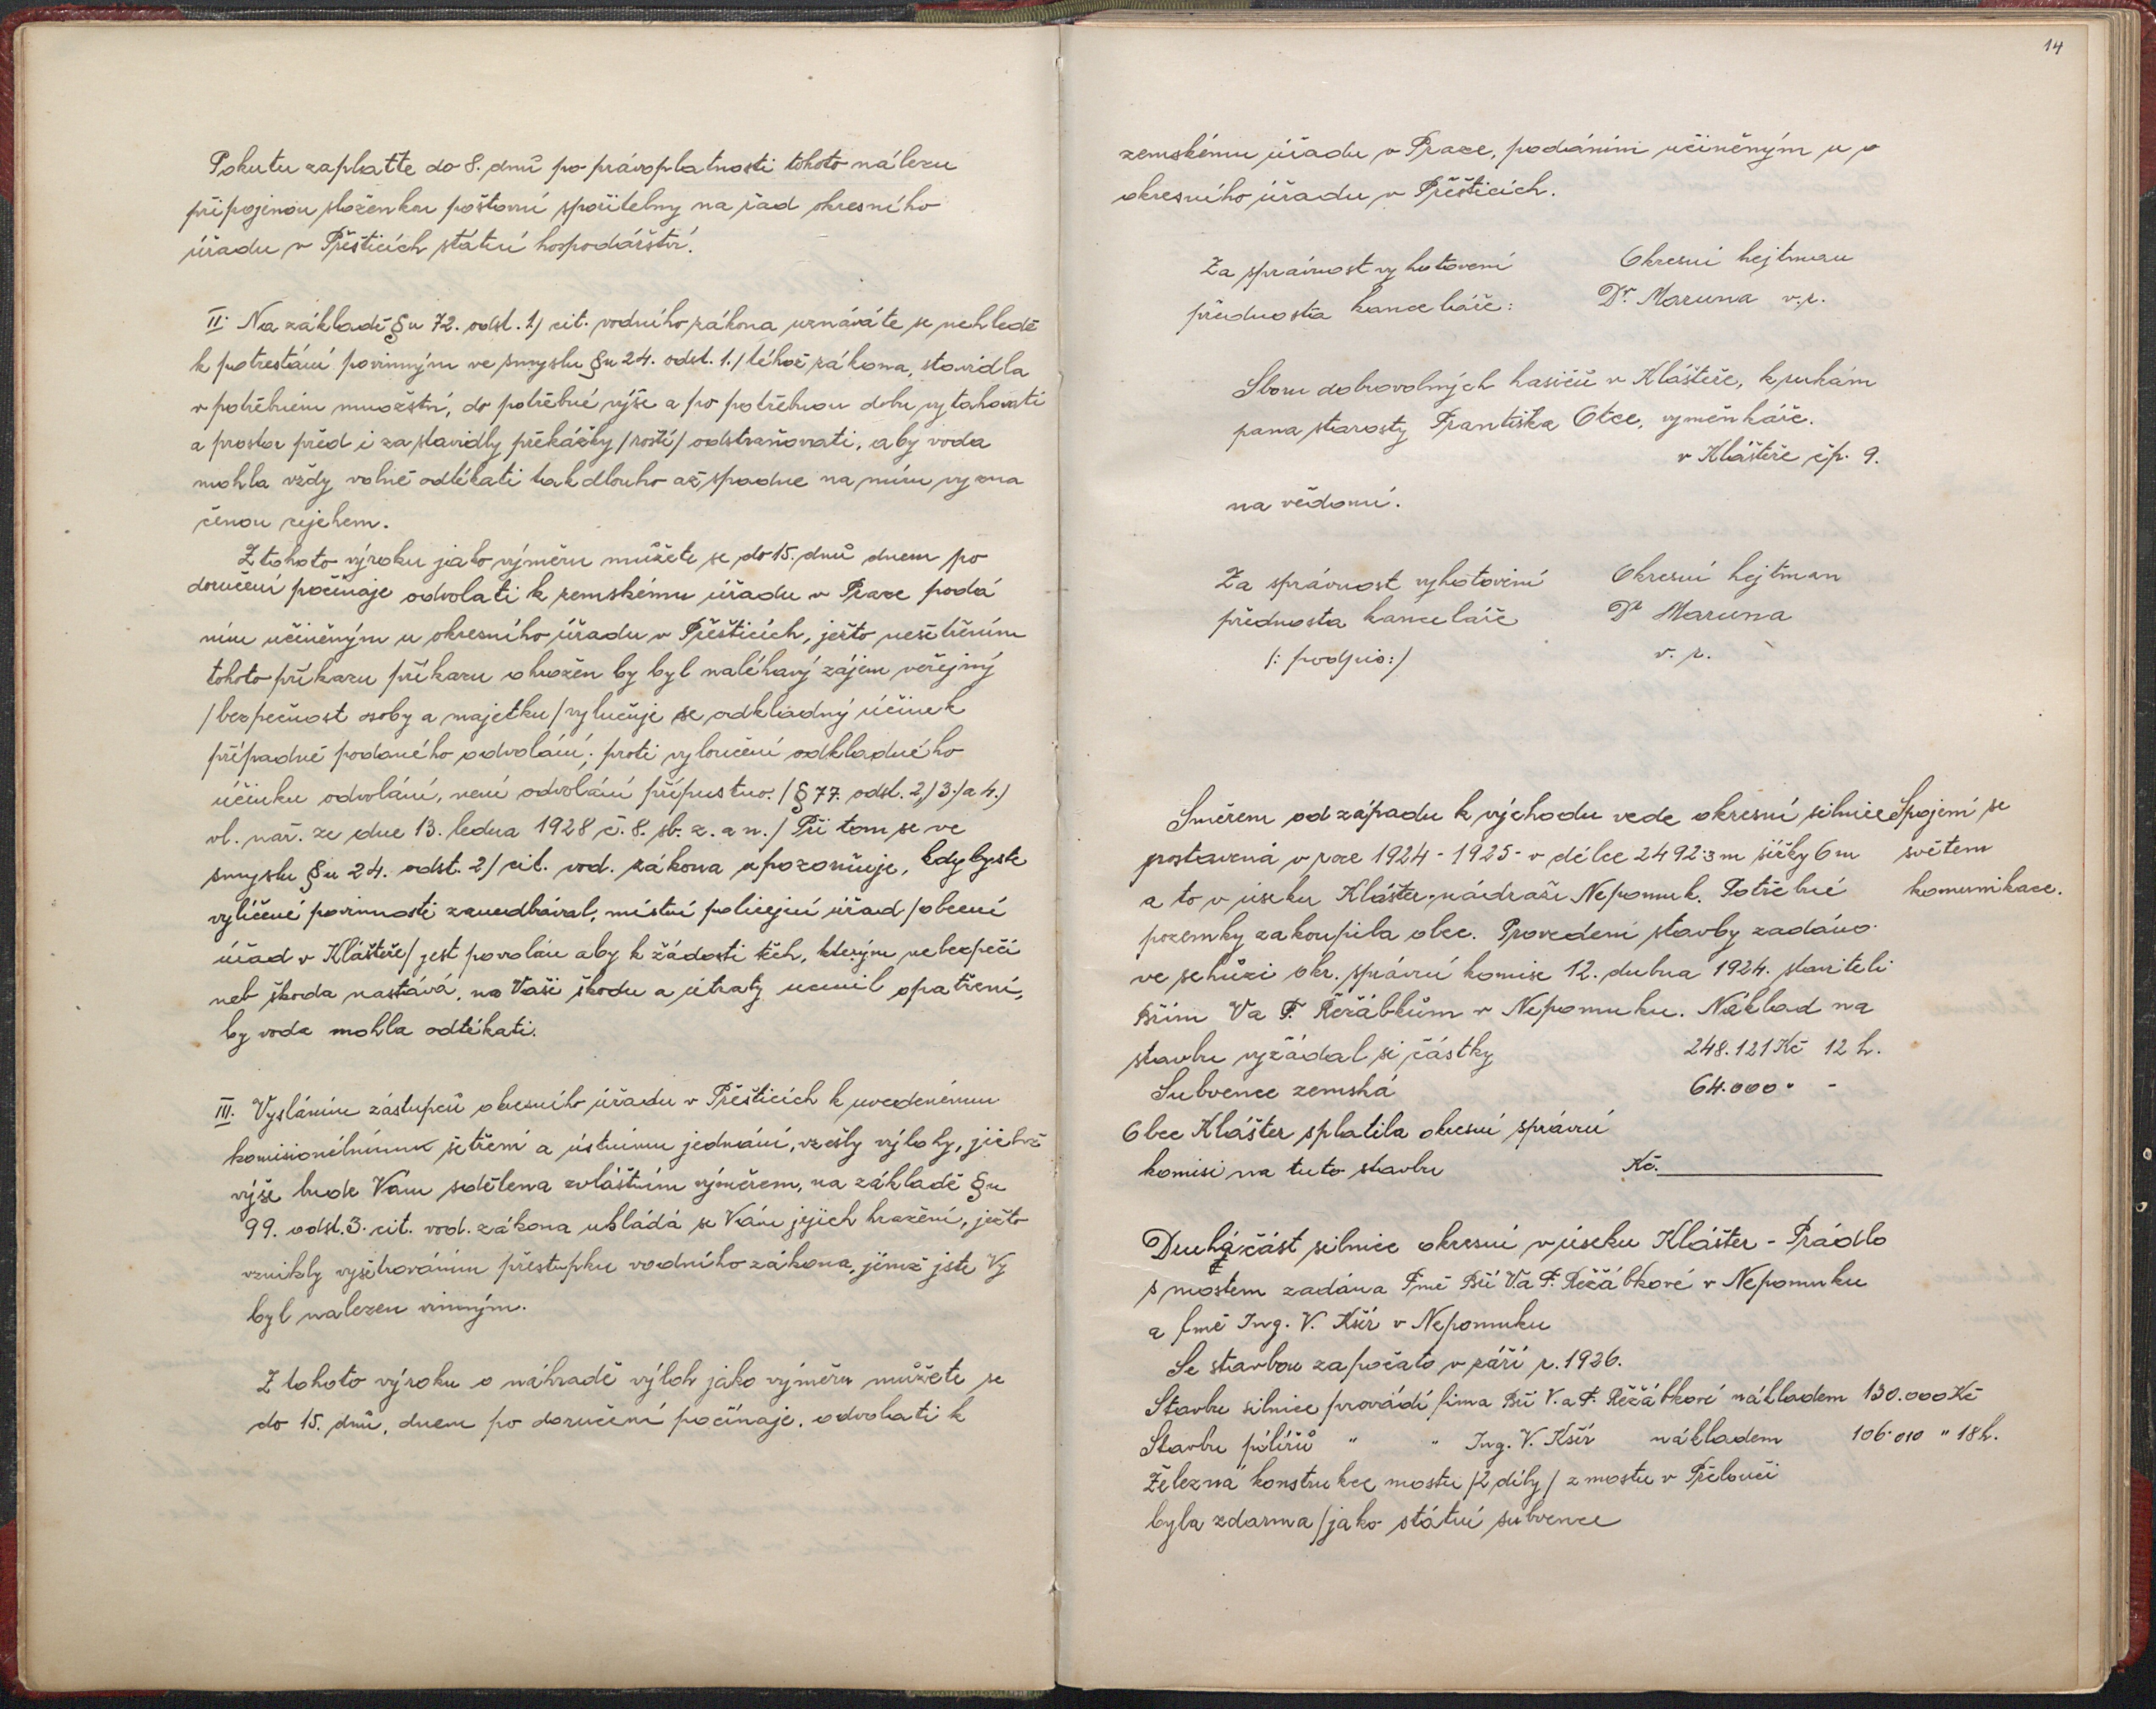 Pokutu zaplaťte do 8. dnů po právoplatnosti tohoto nálezu
připojenou složenkou poštovní spořitelny na řad okresního
úřadu v Přešticích státní hospodářství.
II. Na základě §u 72. odst. 1) cit. vodního zákona uznáváte se nehledě
k potrestání povinným ve smyslu §u 24. odst. 1./ téhož zákona, stavidla
v potřebném množství, do potřebné výše a po potřebnou dobu vytahovati
a prostor před i za stavidly překážky /roští/ odstraňovati, aby voda
mohla vždy volně odtékati tak dlouho až spadne na míru vyzna
čenou cejchem.
Z tohoto výroku jako výměru můžete se do 15. dnů dnem po
doručení počínaje odvolati k zemskému úřadu v Praze podá
ním učiněným u okresního úřadu v Přešticích, ježto nešetřením
tohoto příkazu příkazu ohrožen by byl naléhavý zájem veřejný
/bezpečnost osoby a majetku/ vylučuje se odkladný účinek
případně podaného odvolání; proti vyloučení odkladného
účinku odvolání, není odvolání přípustno. /§ 77. odst. 2,) 3./ a 4.)
vl. nař. ze dne 13. ledna 1928 č. 8. sb. z. a n./ Při tom se ve
smyslu §u 24. odst. 2/ cit. vod. zákona upozorňuje, kdybyste
vylíčené povinnosti zanedbával, místní policejní úřad /obecní
úřad v Klášteře/ jest povolán aby k žádosti těch, kterým nebezpečí
neb škoda nastává, na Vaši škodu a útraty učinil opatření,
by voda mohla odtékati.
III. Vysláním zástupců okresního úřadu v Přešticích k uvedenému
komisionélnímu šetření a ústnímu jednání, vzešly výlohy, jichž
výše bude Vám sdělena zvláštním výměrem, na základě §u
99. odst. 3. cit. vod. zákona ukládá se Vám jejich hrazení, ježto
vznikly vyšetřováním přestupku vodního zákona, jímž jste Vy
byl nalezen vinným.
Z tohoto výroku o náhradě výloh jako výměru můžete se
do 15. dnů, dnem po doručení počínaje, odvolati k
14
zemskému úřadu v Praze, podáním učiněným u o
okresního úřadu v Přešticích.
Za správnost vyhotovení Okresní hejtman
přednosta kanceláře: Dr. Maruna v.r.
Sboru dobrovolných hasičů v Klášteře, k rukám
pana starosty Františka Otce, výměnkáře.
v Klášteře čp. 9.
na vědomí.
Za správnost vyhotovení Okresní hejtman
přednosta kanceláře Dr Maruna
/: podpis:/ v. r.
Směrem od západu k východu vede okresní silnice Spojení se
postavená v roce 1924-1925- v délce 2492·3 m šířky 6 m světem
a to v úseku Klášter, nádraží Nepomuk. Potřebné komunikace.
pozemky zakoupila obec. Provedení stavby zadáno
ve schůzi okr. správní komise 12. dubna 1924. staviteli
Břím V a F. Řeřábkům v Nepomuku. Náklad na
stavbu vyžádal si částky 248.121 Kč 12 h.
Subvence zemská 64.000 " -
Obec Klášter splatila okresní správní
komisi na tuto stavbu Kč.
Druhá část silnice okresní v úseku Klášter - Prádlo
s mostem zadána Fmě Bří V. a F. Řeřábkové v Nepomuku
a fmě Ing. V. Kšír v Nepomuku
Se stavbou započato v září r. 1926.
Stavbu silnice provádí firma Bří V. a F. Řežábkové nákladem 130.000 Kč
Stavbu pilířů " " Ing. V. Kšír nákladem 106·010 " 18 h.
Železná konstrukce mostu /2 díly/ z mostu v Přelouči
byla zdarma /jako státní subvence